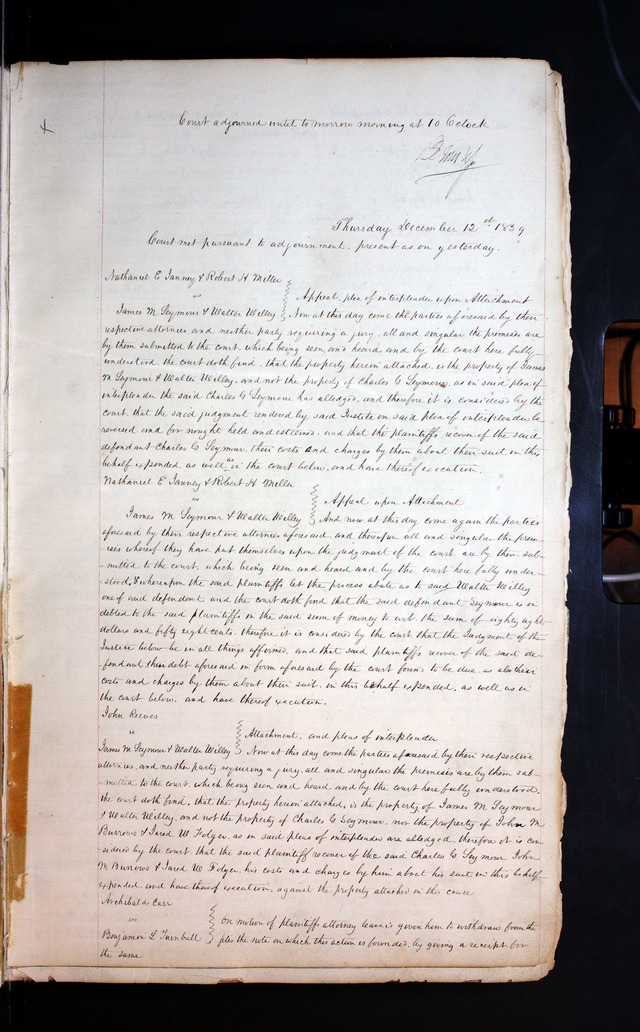 Court adjourned until to morrow morning at 10 Oclock
Thursday December 12th 1839
Court met pursuant to adjournment. present as on yesterday.
Nathaniel E Janney & Robert H Miller
vs
Appeal, plea of interpleader upon Attachment
James M Seymour & Walter Willey
Now at this day come the parties aforesaid by their
respective attornies, and neither party requiring a jury, all and singular the premises are
by them submitted to the court, which being seen, and heard and by the court here fully
understood. the court doth find, that the property herein attached, is the property of James
M Seymour & Walter Willey, and not the property of Charles C Seymour, as in said plea of
interpleader the said Charles C Seymour has alledged, and therefore it is considered by the
court, that the said judgment rendered by said Justice on said plea of interpleader be
reversed and for nought held and esteemed. and that the plaintiffs recover of the said
defendant Charles C Seymour, their costs and charges by them about their suit in this
behalf expended, as well as in the court below, and have thereof execution.
Nathaniel E Janney & Robert H Miller
vs
Appeal upon Attachment
James M Seymour & Walter Willey
And now at this day come again the parties
aforesaid by their respective attornies aforesaid, and thereupon all and singular the prem-
ises whereof they have put themselves upon the judgment of the court are by them sub-
mitted to the court, which being seen and heard and by the court here fully under-
stood, & whereupon the said plaintiffs let the process abate as to said Walter Willey
one of said defendants. and the court doth find that the said defendant Seymour is in
debted to the said plaintiffs in the said sum of money to wit. the sum of eighty eight
dollars and fifty eight cents. therefore it is considered by the court that the Judgment of the
Justice below be in all things affirmed, and that said plaintiffs recover of the said de-
fendant their debt aforesaid in form aforesaid by the court found to be due, as also their
costs and charges by them about their suit, in this behalf expended, as well as in
the court below. and have thereof execution.
John Reeves
vs
Attachment. and pleas of interpleader
James M Seymour & Walter Willey
Now at this day come the parties aforesaid by their respective
attornies, and neither party requiring a jury, all and singular the premises are by them sub-
mitted to the court, which being seen and heard, and by the court here fully understood,
the court doth find, that the property herein attached, is the property of James M Seymour
& Walter Willey, and not the property of Charles C Seymour, nor the property of John M
Burrows & Jared W Folger, as in said pleas of interpleader are alledged. therefore it is con-
sidered by the court that the said plaintiff recover of the said Charles C Seymour John
M Burrows & Jared W Folger, his costs and charges by him about his suit in this behalf
expended, and have thereof execution, against the property attached in this cause
Archibald Carr
vs
on motion of plaintiffs attorney leave is given him to withdraw from the
Benjamin L Turnbull
files the note on which this action is founded, by giving a receipt for
the same